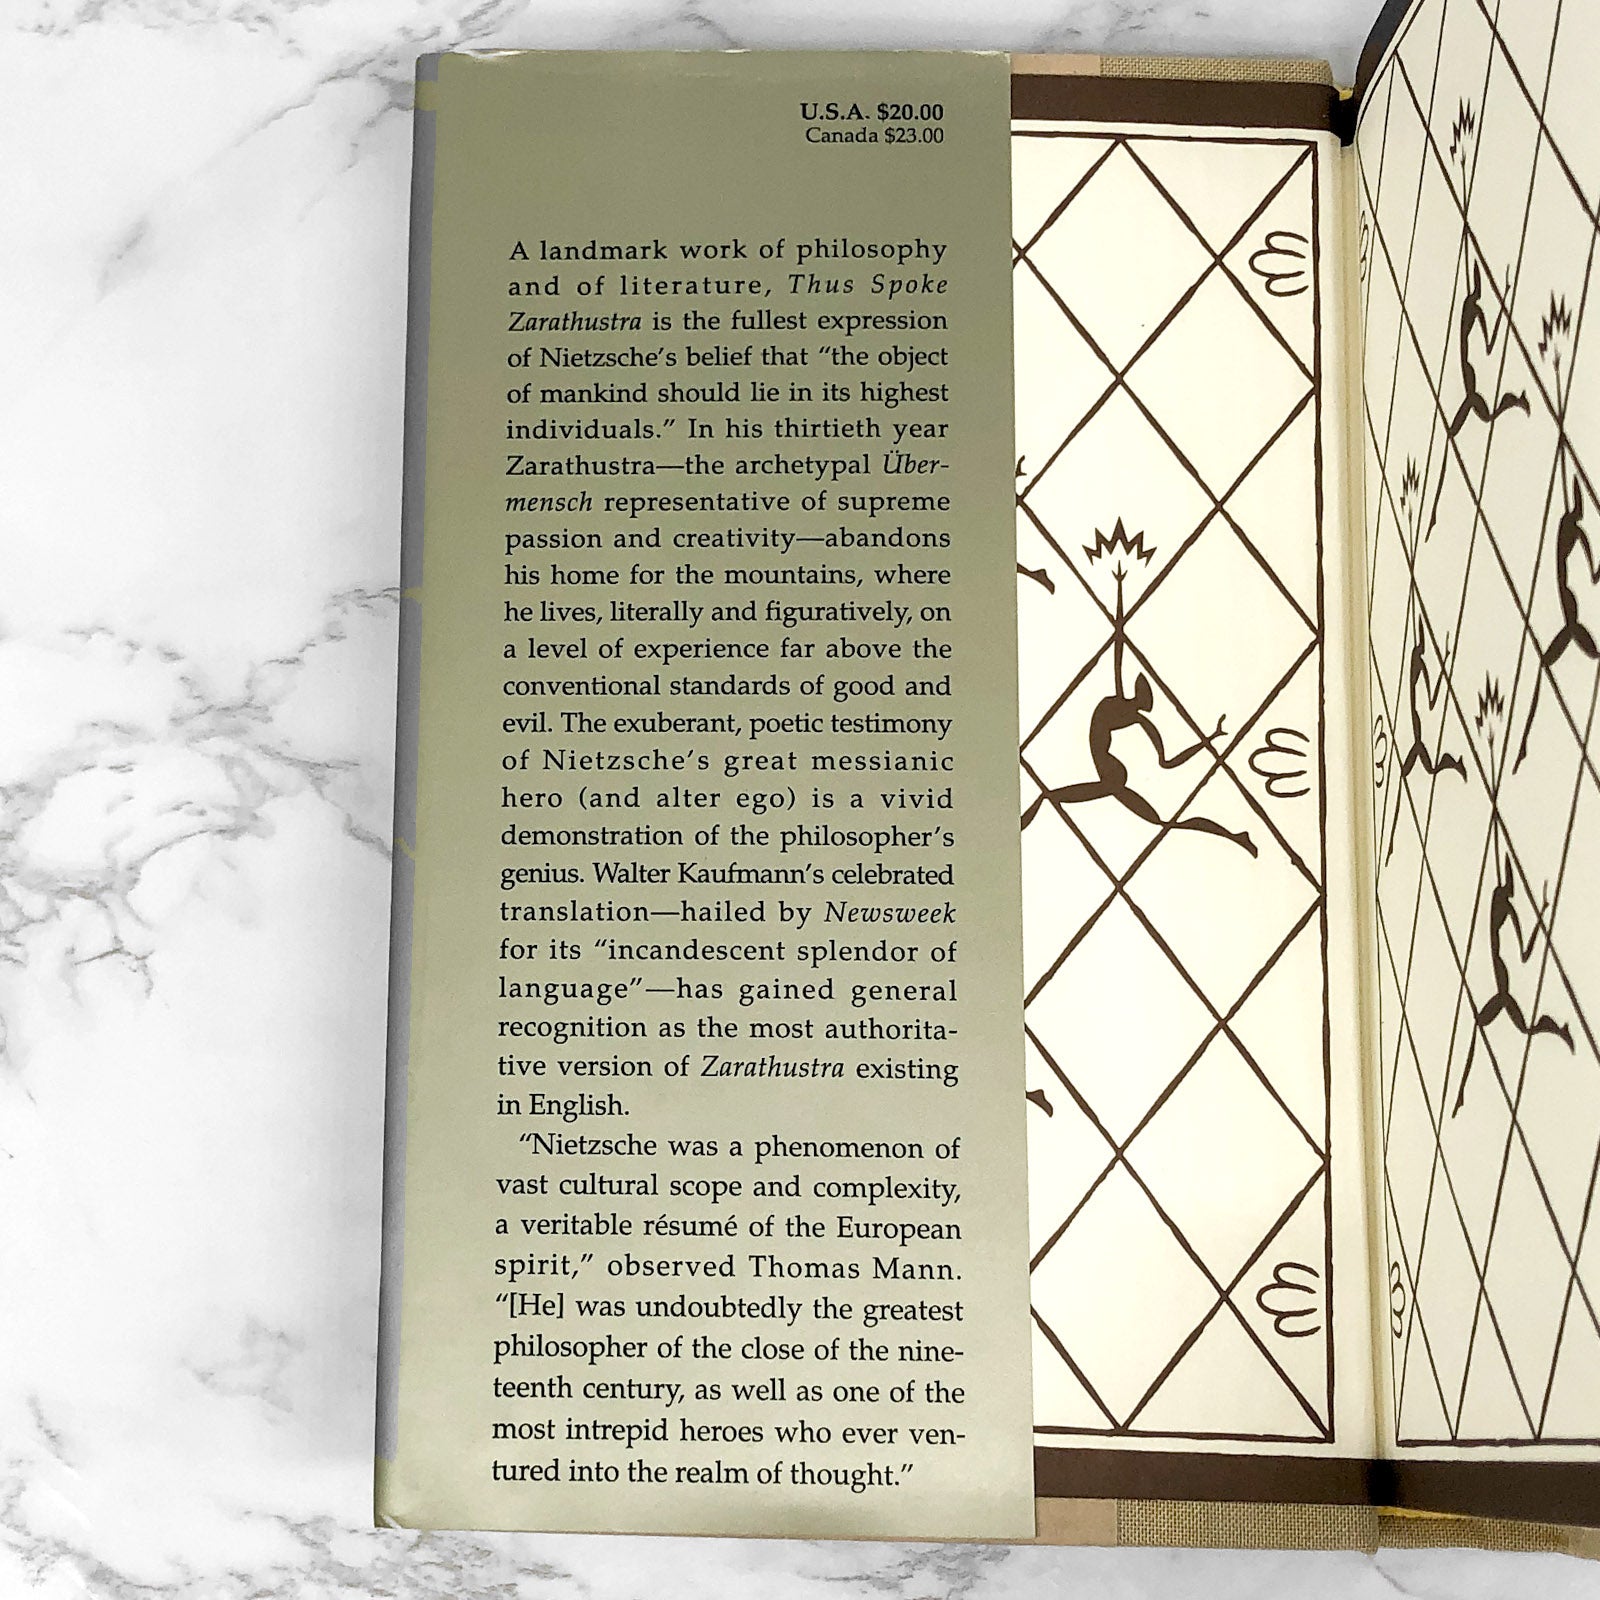 U.S.A. $20.00
Canada $23.00
A landmark work of philosophy
and of literature, Thus Spoke
Zarathustra is the fullest expression
of Nietzsche's belief that “the object
of mankind should lie in its highest
individuals.” In his thirtieth year
Zarathustra—the archetypal Über-
mensch representative of supreme
passion and creativity—abandons
his home for the mountains, where
he lives, literally and figuratively, on
a level of experience far above the
conventional standards of good and
evil. The exuberant, poetic testimony
of Nietzsche's great messianic
hero (and alter ego) is a vivid
demonstration of the philosopher's
genius. Walter Kaufmann's celebrated
translation—hailed by Newsweek
for its “incandescent splendor of
language”—has gained general
recognition as the most authorita-
tive version of Zarathustra existing
in English.
“Nietzsche was a phenomenon of
vast cultural scope and complexity,
a veritable résumé of the European
spirit,” observed Thomas Mann.
“[He] was undoubtedly the greatest
philosopher of the close of the nine-
teenth century, as well as one of the
most intrepid heroes who ever ven-
tured into the realm of thought.”